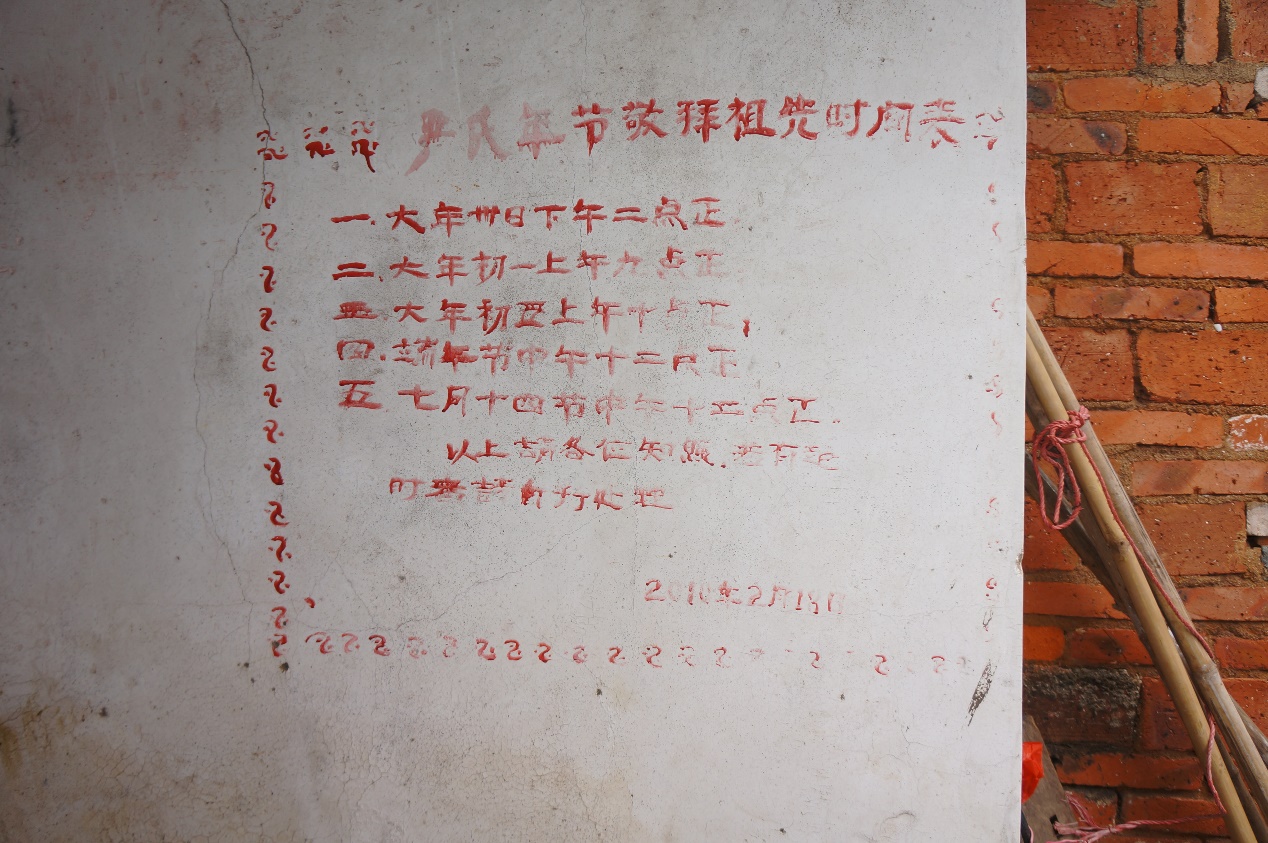 严氏年节敬拜祖先时间表
一.大年卅日下午二点正
二.大年初一上午九点正
三.大年初上午十点正
四.端年节中午十二点正
五 七月十四节中午十二点正.
以上请各位知照.若有
时请自行处理
2010年2月